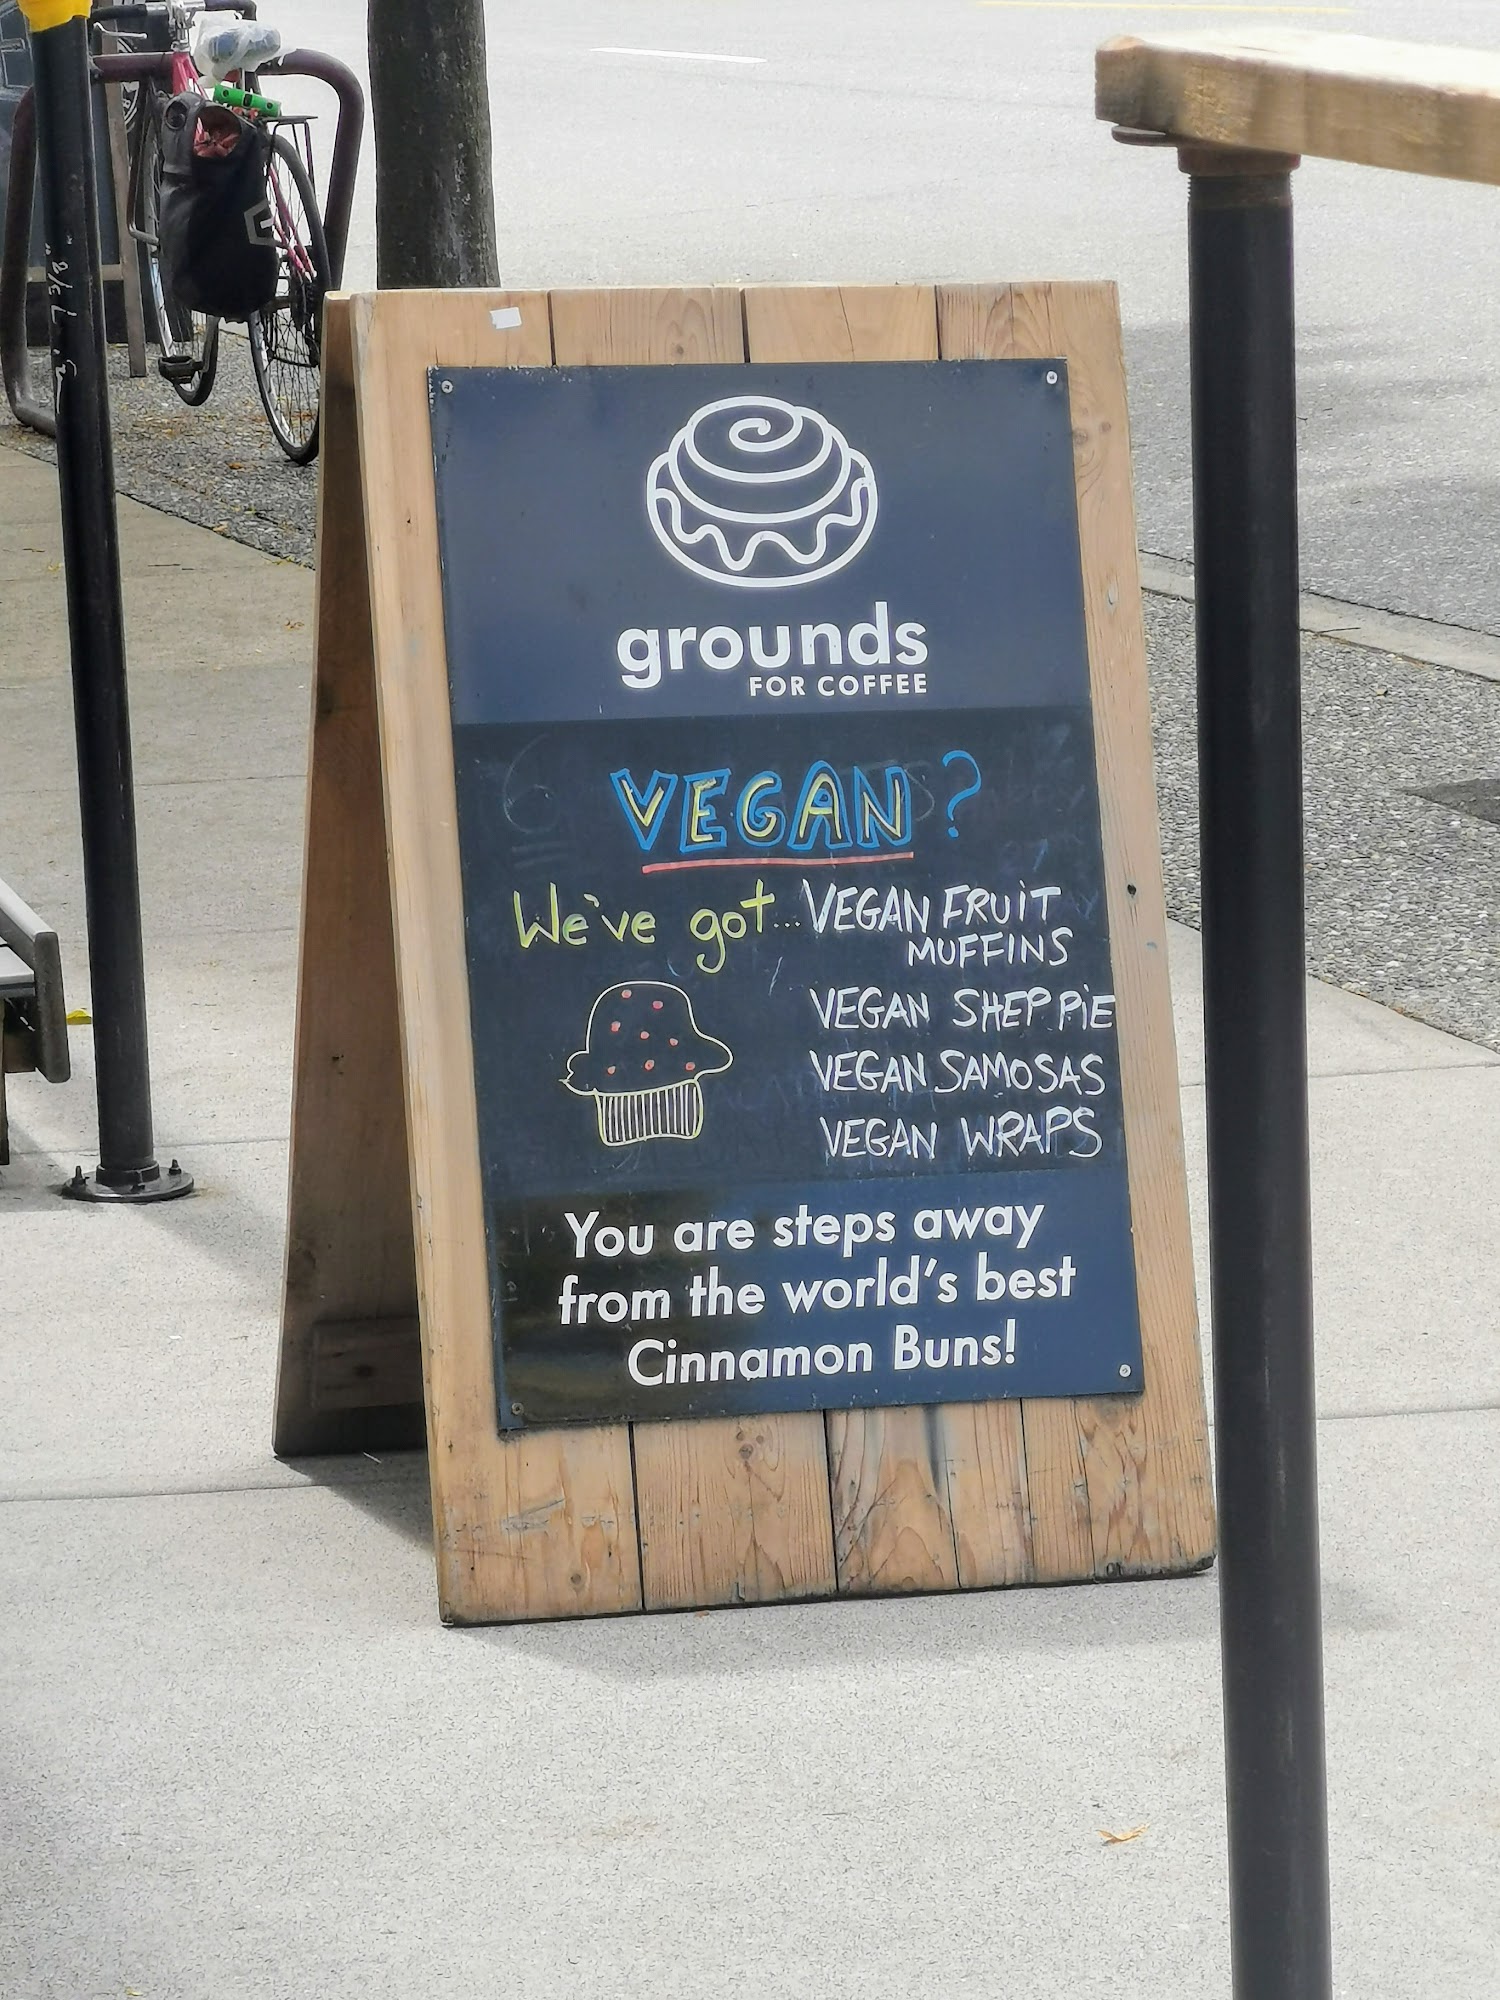 grounds
FOR COFFEE
VEGAN?
We've got... VEGAN FRUIT
MUFFINS
VEGAN SHEP PIE
VEGAN SAMOSAS
VEGAN WRAPS
You are steps away
from the world's best
Cinnamon Buns!